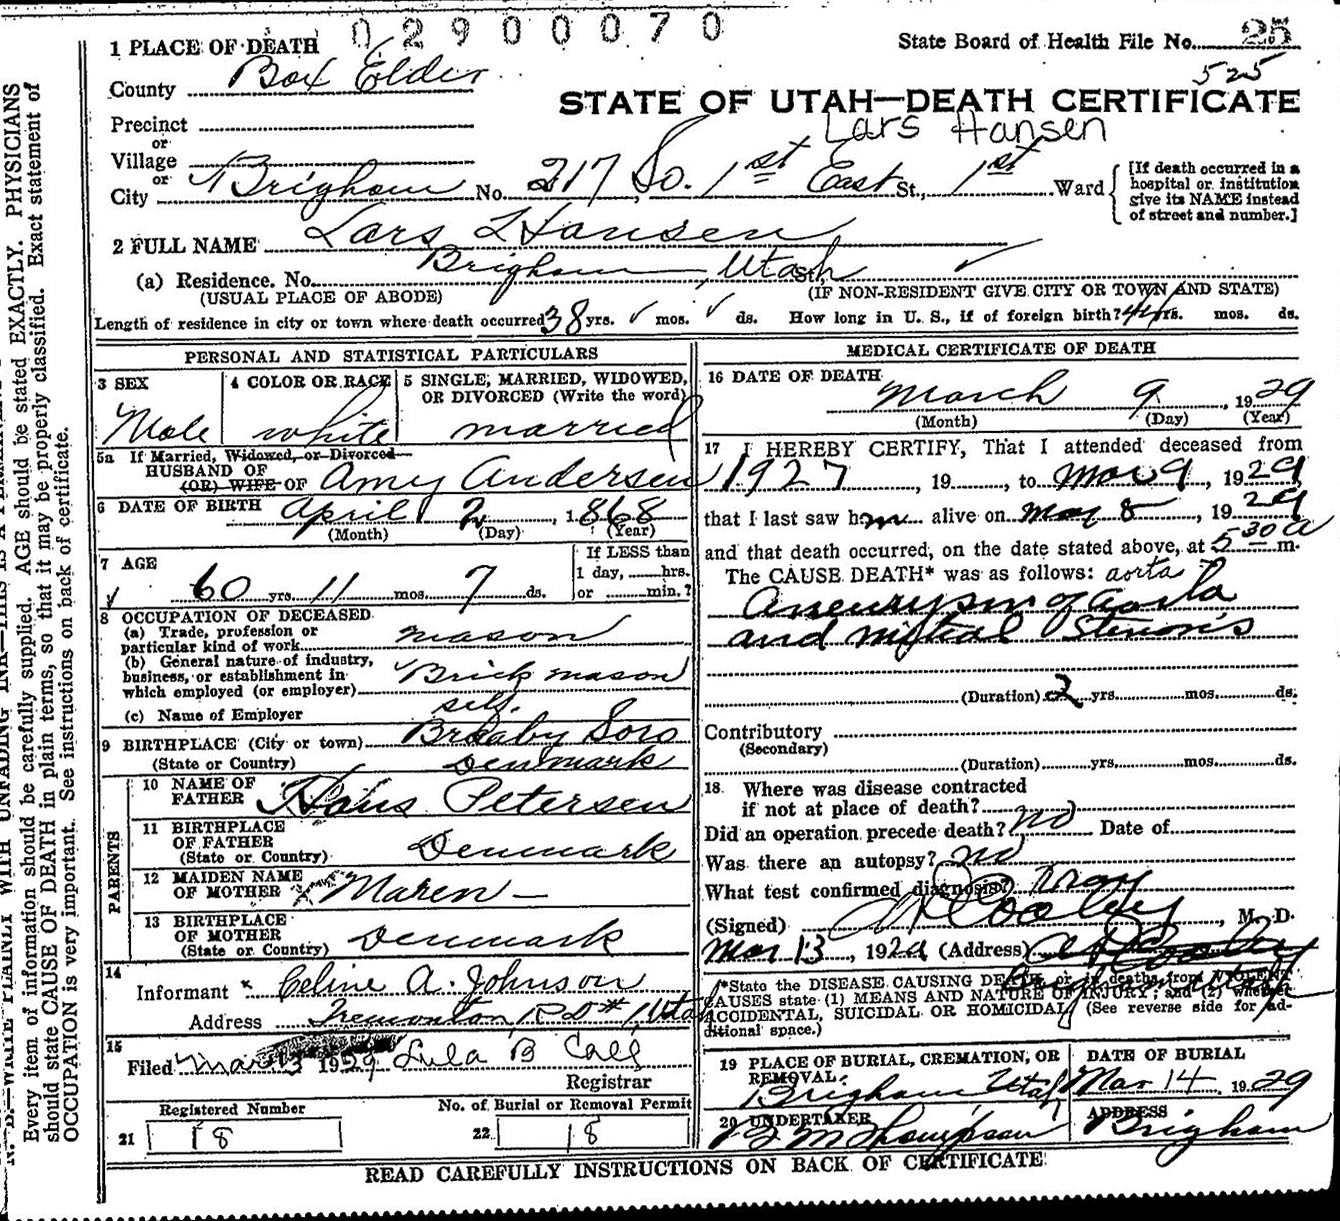 02900070
1 PLACE OF DEATH
State Board of Health File No. 25
525
County Box Elder
STATE OF UTAH—DEATH CERTIFICATE
Lars Hansen
Precinct
or
Village
or
City Brigham No. 217 So. 1st East St., 1st Ward
[If death occurred in a
hospital or institution
give its NAME instead
of street and number.]
2 FULL NAME Lars Hansen
(a) Residence. No. Brigham, Utah St.,
(USUAL PLACE OF ABODE) (IF NON-RESIDENT GIVE CITY OR TOWN AND STATE)
Length of residence in city or town where death occurred 38 yrs. mos. ds. How long in U. S., if of foreign birth? yrs. mos. ds.
PERSONAL AND STATISTICAL PARTICULARS
3 SEX
Male
4 COLOR OR RACE
white
5 SINGLE, MARRIED, WIDOWED,
OR DIVORCED (Write the word)
married
5a If Married, Widowed, or Divorced
HUSBAND OF
(OR) WIFE OF Amy Andersen
6 DATE OF BIRTH April 2, 1868
(Month) (Day) (Year)
7 AGE
60 yrs. 11 mos. 7 ds.
If LESS than
1 day, hrs.
or min.?
8 OCCUPATION OF DECEASED
(a) Trade, profession or
particular kind of work mason
(b) General nature of industry,
business, or establishment in
which employed (or employer) Brick mason
(c) Name of Employer self.
9 BIRTHPLACE (City or town) Soro
(State or Country) Denmark
PARENTS
10 NAME OF
FATHER Hans Petersen
11 BIRTHPLACE
OF FATHER
(State or Country) Denmark
12 MAIDEN NAME
OF MOTHER Maren —
13 BIRTHPLACE
OF MOTHER
(State or Country) Denmark
14
Informant Celine A. Johnson
Address Tremonton, R D # 1, Utah
15
Filed Mar 13 1929 Lula B Call
Registrar
Registered Number
21 18
No. of Burial or Removal Permit
22 18
MEDICAL CERTIFICATE OF DEATH
16 DATE OF DEATH
March 9, 1929
(Month) (Day) (Year)
17 I HEREBY CERTIFY, That I attended deceased from
1927, 19, to Mar 9, 1929
that I last saw him alive on 8, 1929
and that death occurred, on the date stated above, at 5 30 a m.
The CAUSE DEATH* was as follows: aorta
Aneurysm of aorta
and mitral Stenosis
(Duration) 2 yrs. mos. ds.
Contributory
(Secondary)
(Duration) yrs. mos. ds.
18. Where was disease contracted
if not at place of death?
Did an operation precede death? no Date of
Was there an autopsy? no
What test confirmed diagnosis? X ray
(Signed) Cooley, M. D.
Mar 13, 1929 (Address) Brigham Utah
*State the DISEASE CAUSING DEATH, or in deaths from VIOLENT
CAUSES state (1) MEANS AND NATURE OF INJURY; and (2) whether
ACCIDENTAL, SUICIDAL OR HOMICIDAL (See reverse side for ad-
ditional space.)
19 PLACE OF BURIAL, CREMATION, OR
REMOVAL.
Brigham Utah
DATE OF BURIAL
Mar 14 1929
20 UNDERTAKER
B M Thompson
ADDRESS
Brigham
READ CAREFULLY INSTRUCTIONS ON BACK OF CERTIFICATE
Every item of information should be carefully supplied. AGE should be stated EXACTLY. PHYSICIANS
should state CAUSE OF DEATH in plain terms, so that it may be properly classified. Exact statement of
OCCUPATION is very important. See instructions on back of certificate.